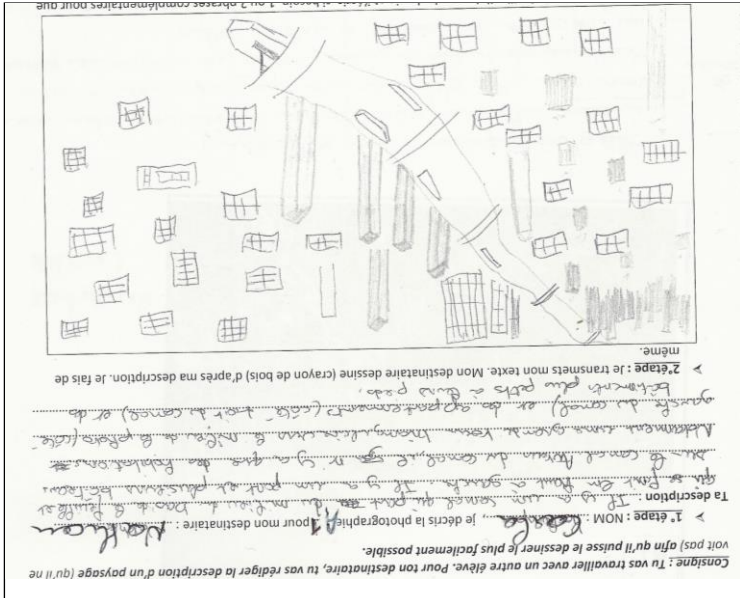 Consigne : Tu vas travailler avec un autre élève. Pour ton destinataire, tu vas rédiger la description d'un paysage (qu'il ne
voit pas) afin qu'il puisse le dessiner le plus facilement possible.
➤ 1° étape : NOM : je décris la photographie pour mon destinataire :
Ta description : Il y a un canal qui part du milieu du bas de la feuille et
qui se finit en haut à gauche. Il y a un pont et plusieurs bateaux
sur le canal. Autour du canal, il n'y a que des habitations
Notamment une grande tour vers le milieu de la photo (côté
gauche du canal) et des appartements (côté droit du canal) et des
bâtiments plus petits à leurs pieds.
➤ 2°étape : Je transmets mon texte. Mon destinataire dessine (crayon de bois) d'après ma description. Je fais de
même.
phrases complémentaires pour que